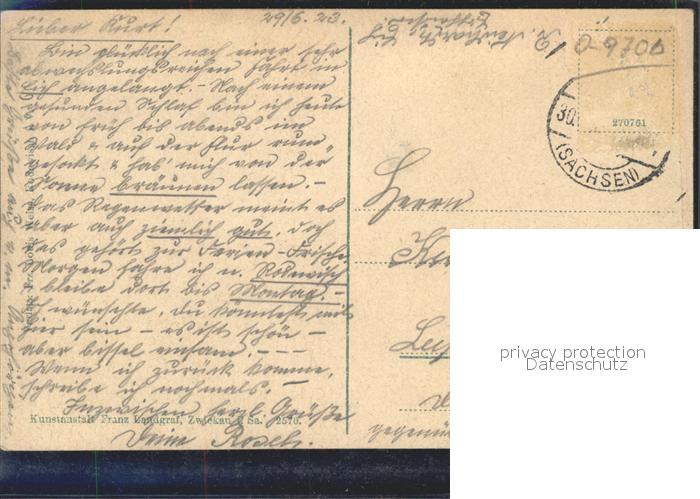 Lieber Kurt!
29/6. 23.
Bin glücklich nach einer sehr
abwechslungsreichen Fahrt in
angelangt. – Nach einem
gesunden Schlaf bin ich heute
von früh bis abends im
Wald & auf der Flur rum
& hab' mich von der
Sonne bräunen lassen. –
Das Regenwetter meint es
aber auch ziemlich gut, doch
es gehört zur Ferien-Frische
Morgen fahre ich n. Rodewisch
bleibe dort bis Montag. –
Ich wünschte, du könntest mit
hier sein – es ist schön –
aber bissel einsam. – – –
Wenn ich zurück komme,
schreibe ich nochmals. –
Inzwischen herzl. Grüße
Deine
Kunstanstalt Franz Landgraf, Zwickau i. Sa. 2570.
0-9700
270761
30.
(SACHSEN)
Herrn
privacy protection
Datenschutz